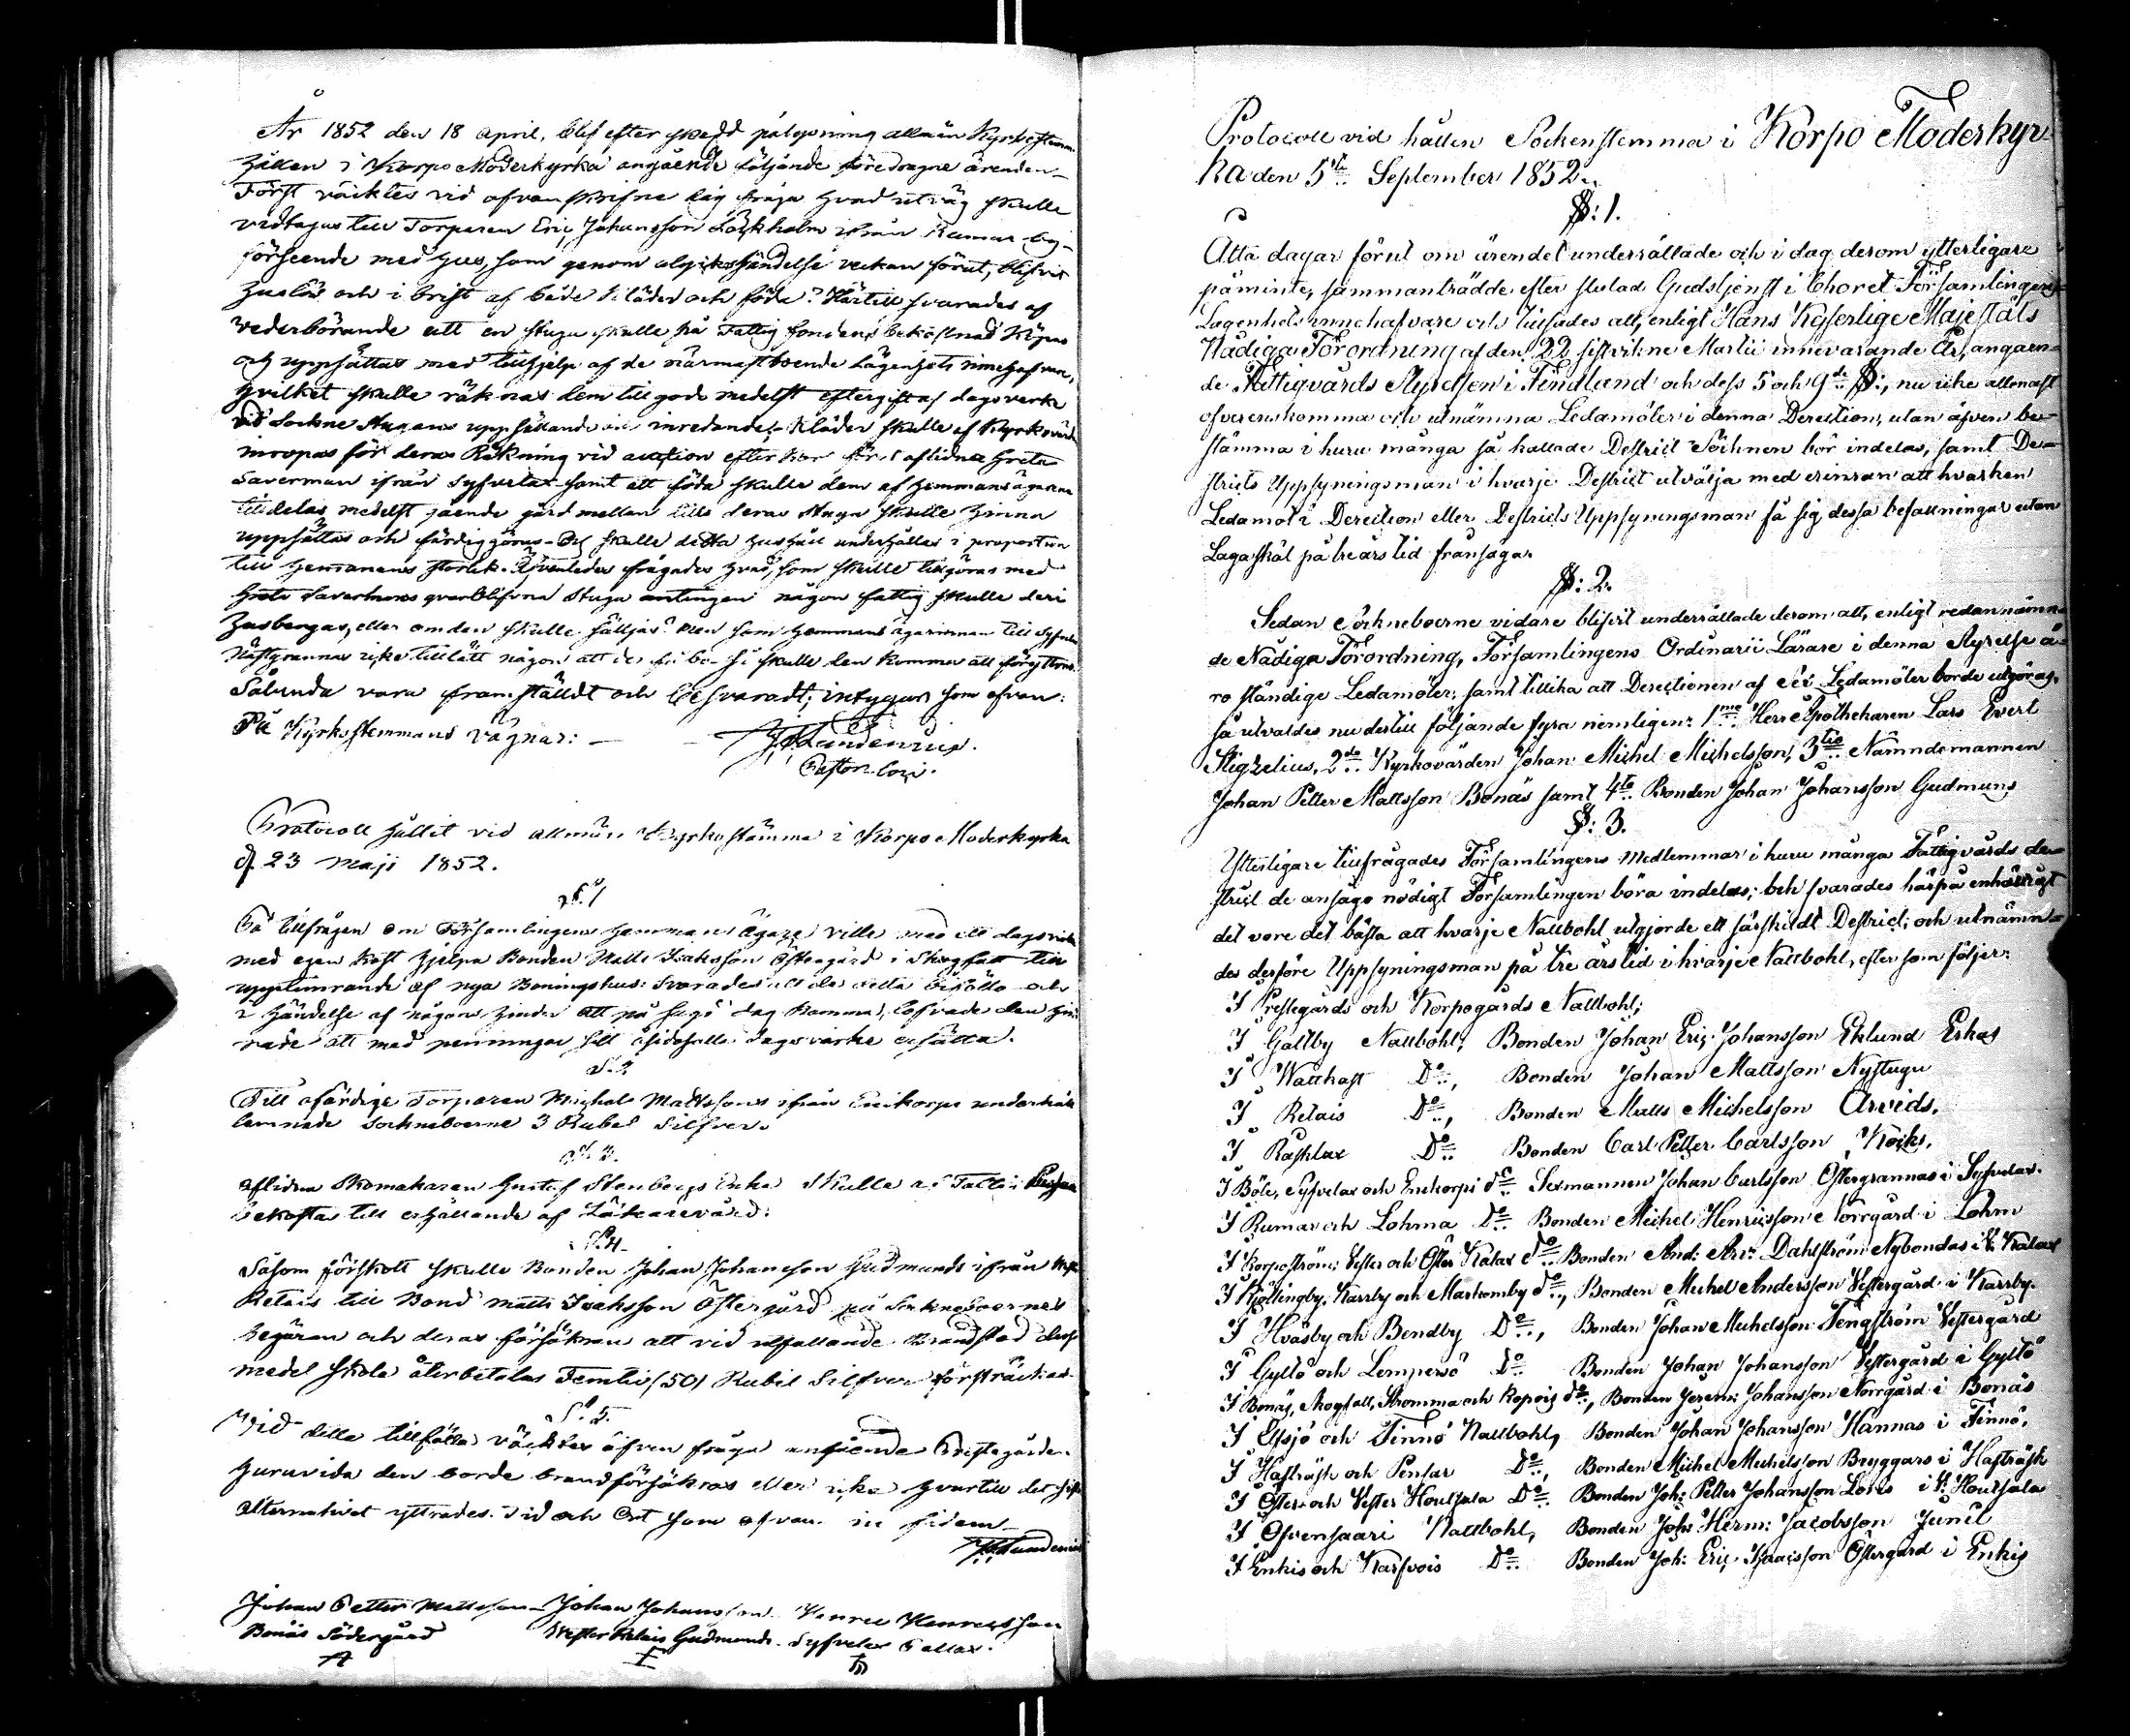 År 1852 den 18 April, blef efter skedd pålysning allmän Kyrkostemma
hållen i Korpo Moderkyrka angående följande föredragne ärenden_
Först väcktes vid ofvanskrifne dag fråga hvad utväg skulle
vidtagas till Torparen Eric Johansson Löckholm ifrån Rumar by-
förseende med hus, som genom olyckshändelse veckan förut, blifvit
huslös och i brist af både kläder och föda? Härtill svarades af
vederbörande att en stuga skulle på Fattig fondens bekostnad köpas
och uppsättas med tillhjelp af de närmast boende Lägenhets innehafvare,
hvilket skulle räknas dem till godo medelst eftergift af dagsverke
vid Sockne Stugans uppsättande och inredande; Kläder skulle af Kyrkovärden
inropas för deras Räkning vid auction efter förut aflidna Greta
Saverman ifrån Syfvelax samt att föda skulle dem af hemmansägarena
tilldelas medelst gående gård mellan tills deras stuga skulle hinna
uppsättas och färdiggöras_ Och skulle detta hushåll underhållas i proportion
till hemmanens storlek. Äfvenledes frågades hvad, som skulle tillgöras med
Greta Savermans qvarblifvna Stuga antingen någon fattig skulle deri
husbergas, eller om den skulle säljas? Men som hemmans ägarinnan till Syfvelax
Nästgrannas icke tillätt någon att der få bo så skulle den komma att föryttras.
Sålunda vara framställdt och besvaradt; intygar som ofvan:
På Kyrkostemmans vägnar: —
Pastor. loci.
Protocoll hållit vid allmän Kyrkostämma i Korpo Moderkyrka
d. 23 Maji 1852.
§. 1
På tillfrågan om Församlingens hemmans ägare ville med ett dagsverke
med egen kost hjelpa Bonden Matts Isaksson Östergård i Skogfatt till
upptimrande af nya Boningshus: Svarades att de detta bifölla och
i händelse af någons hinder att på sagd dag komma, lofvade den hin-
rade att med penningar sitt åsidosatta dagsverke ersätta.
§. 2
Till ofärdige Torparen Michel Mattssons ifrån Enikorpi underhåll
lemnade Sockneboerne 3 Rubel Silfver.
§. 3.
Aflidna Skomakaren Gustaf Stenbergs Enka skulle af Fattig Cassan
bekostas till erhållande af Läkarevård.
§. 4.
Såsom förskott skulle Bonden Johan Johansson Gudmunds ifrån
Retais till Bond Matts Isaksson Östergård på Sockneboernes
begäran och deras försäkran att vid utfallande Brandstod dess
medel skola återbetalas Femtio (50) Rubel Silfver försträckas.
§. 5.
Vid detta tillfälle väcktes äfven fråga angående Prestgården
huruvida den borde brandförsäkras eller icke hvartill det sista
alternativet yttrades. Tid och Ort som ofvan in fidem_
Johan Petter Mattsson_ Johan Johansson. Henric Henricsson
Bonäs Södergård Wester Retais Gudmunds. Syfvelax Pallax.
Protocoll vid hållen Sockenstemma i Korpo Moderkyr-
ka den 5te September 1852.
§: 1.
Åtta dagar förut om ärendet underrättade och i dag derom ytterligare
påminte, sammanträdde efter slutad Gudstjenst i Choret Församlingens
Lägenhets innehafvare och tillsades att, enligt Hans Kejserlige Majestäts
Nådiga Förordning af den 22 sistvikne Martii innevarande År, angåen-
de Fattigvårds Styrelsen i Finland och dess 5 och 9de §:, nu icke allenast
öfverenskomma och utnämna Ledamöter i denna Direction, utan äfven be-
stämma i huru många så kallade District Socknen bör indelas, samt Di-
stricts Uppsyningsman i hvarje District utvälja med erinran att hvarken
Ledamot i Direction eller Districts Uppsyningsman få sig dessa befattningar utan
Laga skäl på tre års tid frånsäga.
§: 2.
Sedan Sockneboerne vidare blifvit underrättade derom att, enligt redan nämn-
de Nådiga Förordning, Församlingens Ordinarii Lärare i denna Styrelse ä-
ro ständige Ledamöter; samt tillika att Directionen af sex Ledamöter borde utgöras,
så utvaldes nu dertill följande fyra nemligen: 1mo Herr Apothekaren Lars Evert
Stigzelius, 2do Kyrkovärden Johan Michel Michelsson, 3tio Nämndemannen
Johan Petter Mattsson Bonäs samt 4to Bonden Johan Johansson Gudmuns
§: 3.
Ytterligare tillfrågades Församlingens Medlemmar i huru många Fattigvårds di-
strict de ansågo nödigt Församlingen böra indelas; och svarades härpå enhälligt
det vore det bästa att hvarje Nattbohl utgjorde ett särskildt District; och utnämn-
des derföre Uppsyningsman på tre års tid i hvarje Nattbohl, efter som följer:
I Prestegårds och Korpogårds Nattbohl;
I Galtby Nattbohl; Bonden Johan Eric Johansson Eklund Erkas
I Wattkast Do, Bonden Johan Mattsson Nystugu
I Retais Do, Bonden Matts Michelsson Arvids,
I Rafslax Do Bonden Carl Petter Carlsson Kocks,
I Böle, Syfvelax och Enikorpi do Sexmannen Johan Carlsson Östergrannas i Syfvelax.
I Rumar och Lohma Do Bonden Michel Henricsson Norrgård i Lohm
I Korpoström: Vester och Öster Kalax do Bonden And: Arv: Dahlström Nybondas i V. Kalax
I Kjöttingby, Karrby och Markomby do, Bonden Michel Andersson Vestergård i Karrby.
I Hväsby och Bendby Do, Bonden Johan Michelsson Tengström Vestergård
I Gyltö och Lempersö Do Bonden Johan Johansson Vestergård i Gyltö
I Bonäs, Skogfatt, Strömma och Kopois do, Bonden Jerem: Johansson Norrgård i Bonäs
I Elfsjö och Finnö Nattbohl, Bonden Johan Johansson Hannas i Finnö.
I Hafträsk och Pensar Do, Bonden Michel Michelsson Bryggars i Hafträsk
I Öster och Vester Houtsala Do Bonden Joh: Petter Johansson Loves i V: Houtsala
I Ofvensaari Nattbohl, Bonden Joh: Herm: Jacobsson Junil
I Enkis och Karfvois Do Bonden Joh: Eric Isaacsson Östergård i Enkis